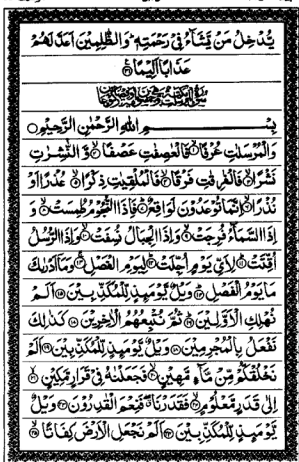 يُّدْخِلُ مَنْ يَّشَآءُ فِيْ رَحْمَتِهٖ ؕ وَالظّٰلِمِيْنَ اَعَدَّ لَهُمْ
عَذَابًا اَلِيْمًا ۝۳۱
بِسْمِ اللّٰهِ الرَّحْمٰنِ الرَّحِيْمِ ۝
وَالْمُرْسَلٰتِ عُرْفًا ۝۱ فَالْعٰصِفٰتِ عَصْفًا ۝۲ وَّ النّٰشِرٰتِ
نَشْرًا ۝۳ فَالْفٰرِقٰتِ فَرْقًا ۝۴ فَالْمُلْقِيٰتِ ذِكْرًا ۝۵ عُذْرًا اَوْ
نُذْرًا ۝۶ اِنَّمَا تُوْعَدُوْنَ لَوَاقِعٌ ۝۷ فَاِذَا النُّجُوْمُ طُمِسَتْ ۝۸ وَ
اِذَا السَّمَآءُ فُرِجَتْ ۝۹ وَاِذَا الْجِبَالُ نُسِفَتْ ۝۱۰ وَاِذَا الرُّسُلُ
اُقِّتَتْ ۝۱۱ لِاَيِّ يَوْمٍ اُجِّلَتْ ۝۱۲ لِيَوْمِ الْفَصْلِ ۝۱۳ وَمَاۤ اَدْرٰىكَ
مَا يَوْمُ الْفَصْلِ ۝۱۴ وَيْلٌ يَّوْمَىِٕذٍ لِّلْمُكَذِّبِيْنَ ۝۱۵ اَلَمْ
نُهْلِكِ الْاَوَّلِيْنَ ۝۱۶ ثُمَّ نُتْبِعُهُمُ الْاٰخِرِيْنَ ۝۱۷ كَذٰلِكَ
نَفْعَلُ بِالْمُجْرِمِيْنَ ۝۱۸ وَيْلٌ يَّوْمَىِٕذٍ لِّلْمُكَذِّبِيْنَ ۝۱۹ اَلَمْ
نَخْلُقْكُّمْ مِّنْ مَّآءٍ مَّهِيْنٍ ۝۲۰ فَجَعَلْنٰهُ فِيْ قَرَارٍ مَّكِيْنٍ ۝۲۱
اِلٰى قَدَرٍ مَّعْلُوْمٍ ۝۲۲ فَقَدَرْنَا ۖ فَنِعْمَ الْقٰدِرُوْنَ ۝۲۳ وَيْلٌ
يَّوْمَىِٕذٍ لِّلْمُكَذِّبِيْنَ ۝۲۴ اَلَمْ نَجْعَلِ الْاَرْضَ كِفَاتًا ۝۲۵